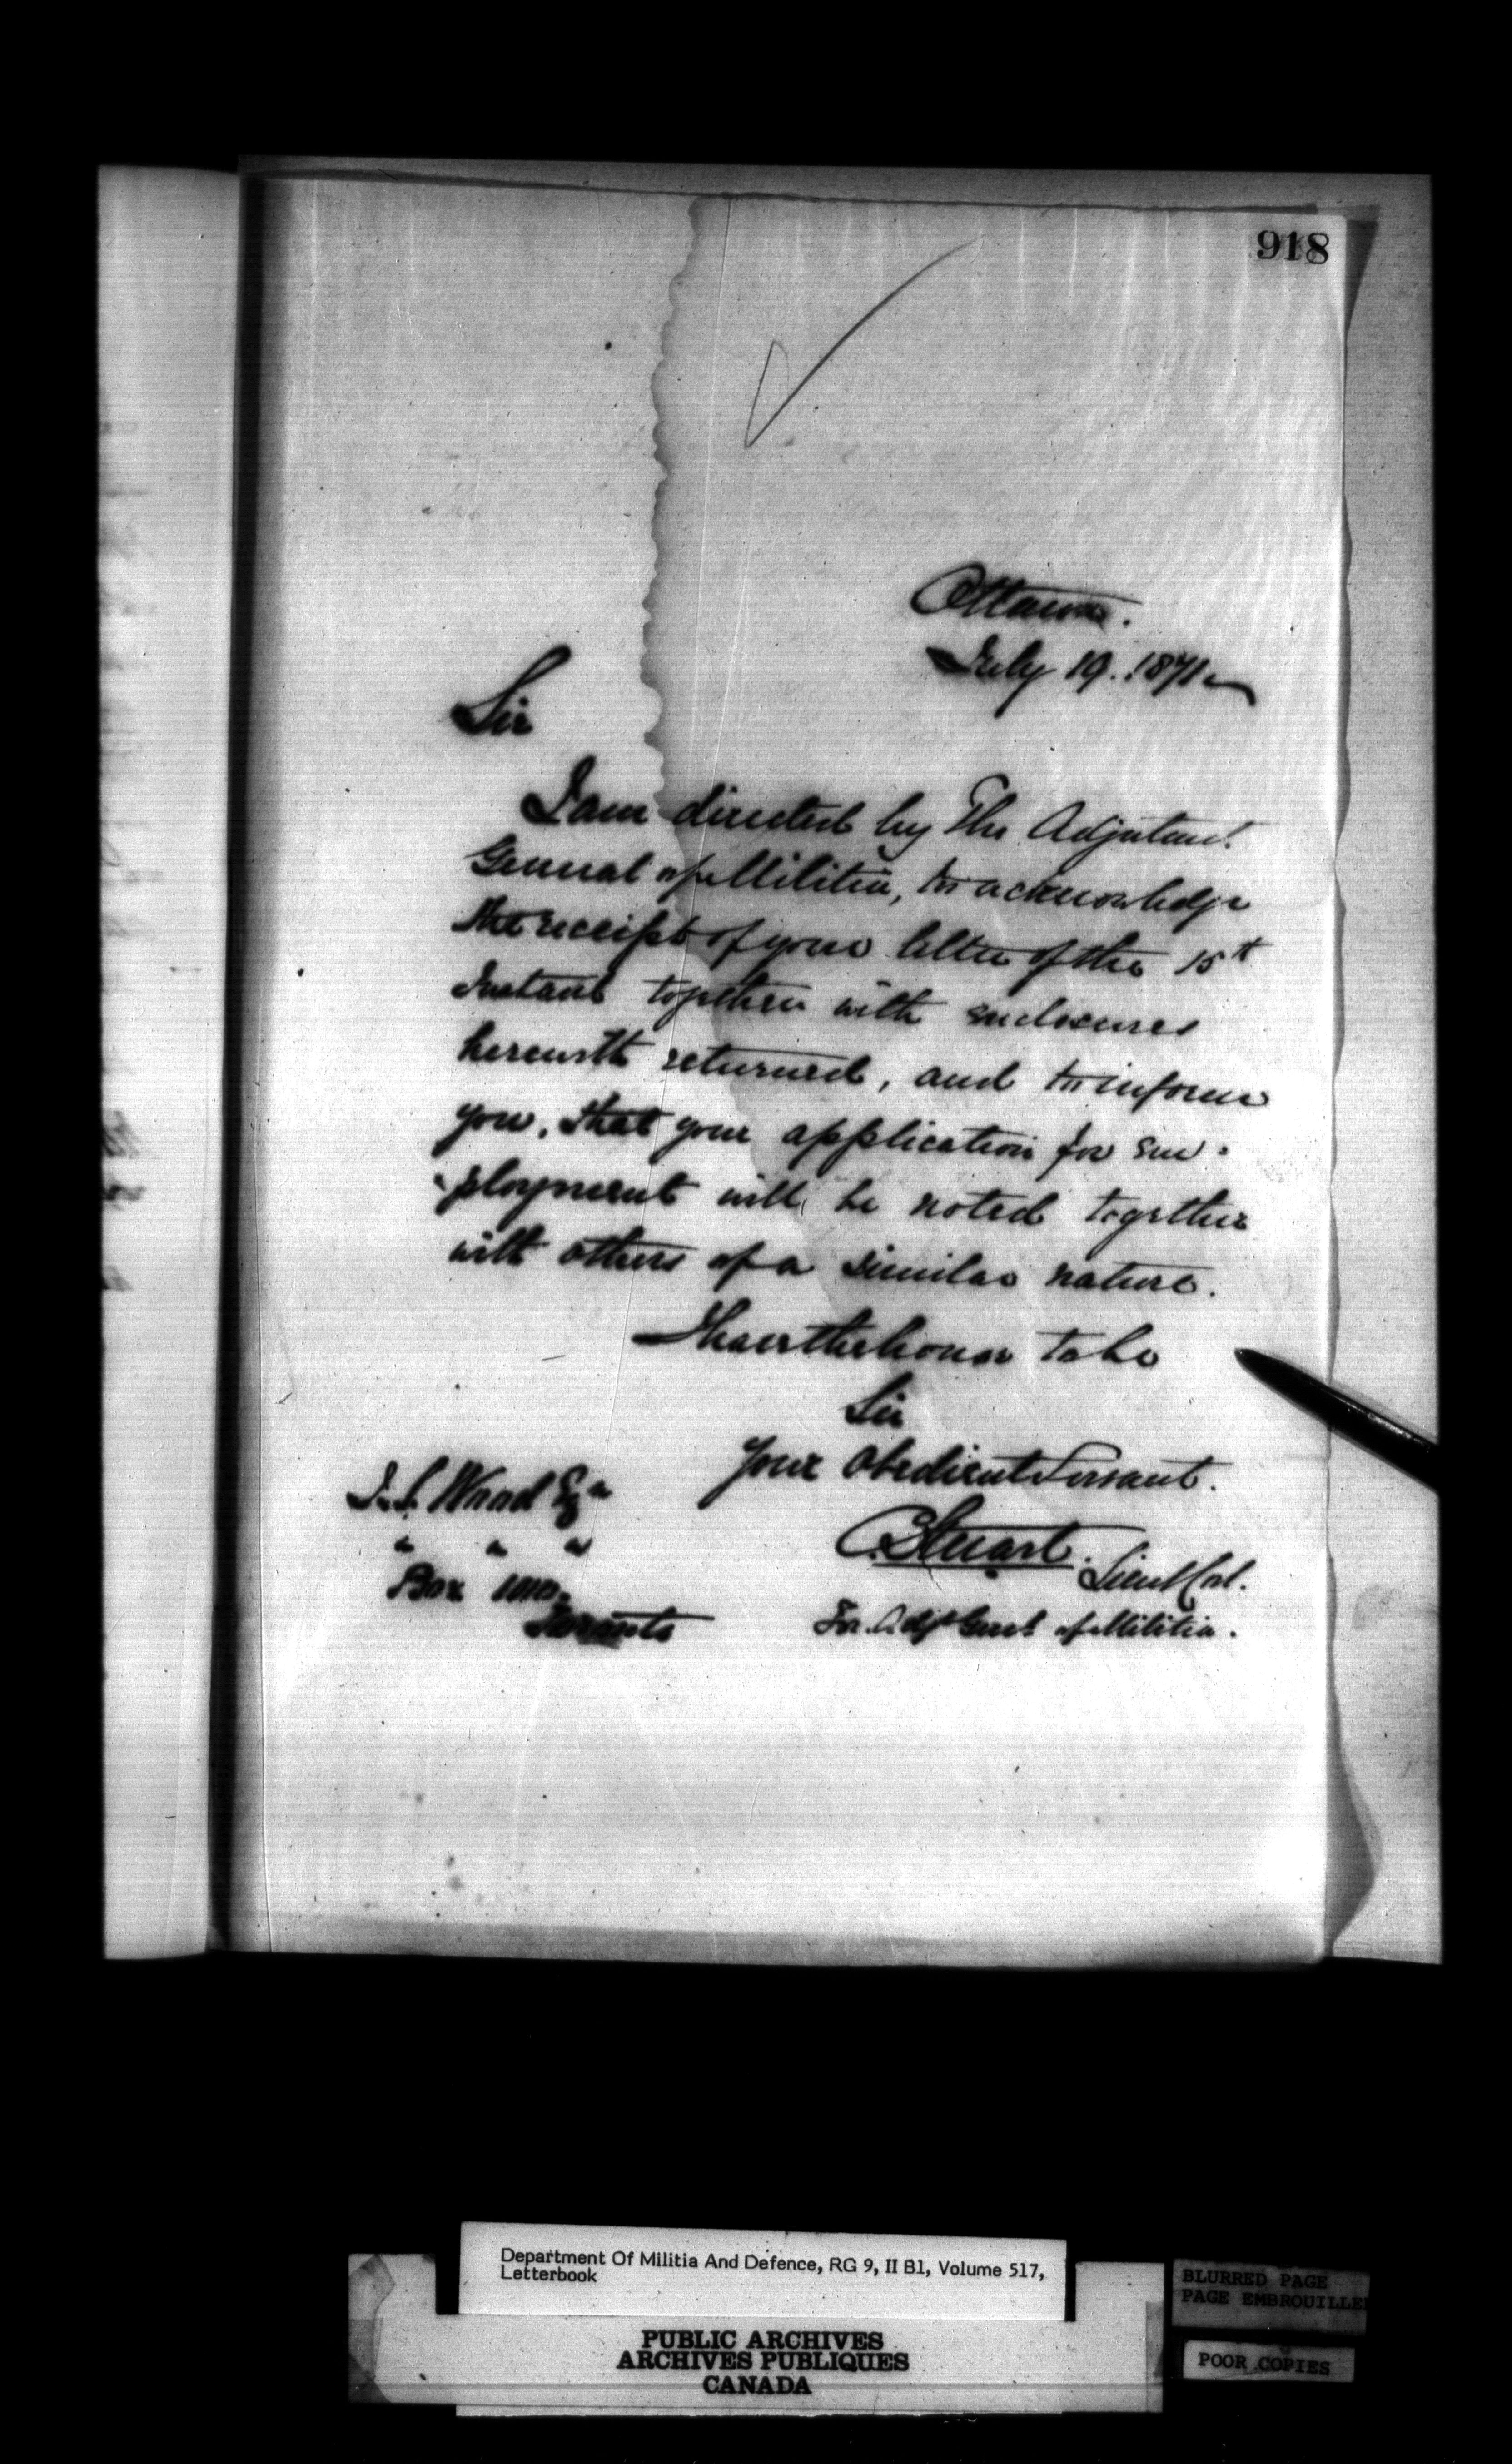 918
Ottawa.
July 19. 1871
Sir
I am directed by The Adjutant
General of Militia, to acknowledge
the receipt of your letter of the 15th
Instant together with enclosures
herewith returned, and to inform
you, that your application for em-
-ployment will be noted together
with others of a similar nature.
I have the honor to be
Sir
Your Obedient Servant.
Wood Esqr
" " "
Box 1010.
Toronto
C. Stuart. Lieut Col.
For Adjt Genl of Militia.
Department Of Militia And Defence, RG 9, II B1, Volume 517,
Letterbook
PUBLIC ARCHIVES
ARCHIVES PUBLIQUES
CANADA
BLURRED PAGE
PAGE EMBROUILLE
POOR COPIES